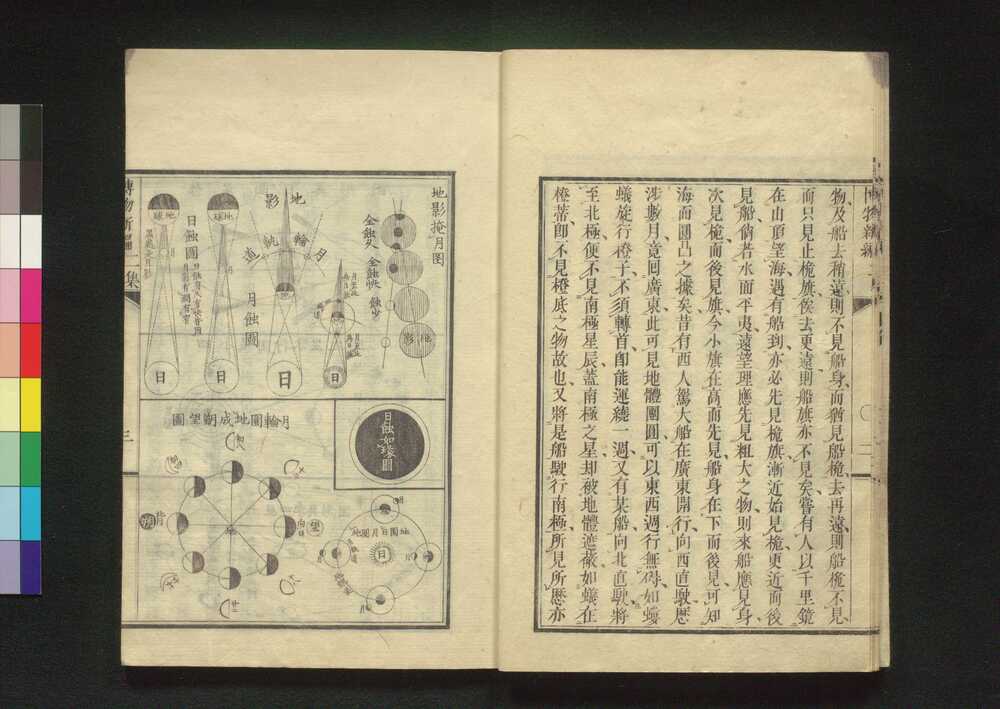 物及船去稍遠則不見船身而猶見船桅去再遠則船桅不見
而只見止桅旗俟去更遠則船旗亦不見矣嘗有人以千里鏡
在山頂望海遇有船到亦必先見桅旗漸近始見桅更近而後
見船倘若水面平夷遠望理應先見粗大之物則來船應見身
次見桅而後見旗今小旗在高而先見船身在下而後見可知
海面圓凸之據矣昔有西人駕大船在廣東開行向西直駛歷
涉數月竟回廣東此可見地體團圓可以東西週行無碍如蟻
蟻旋行橙子不須轉首卽能運繞一週又有某船向北直駛將
至北極便不見南極星辰蓋南極之星却被地體遮蔽如蟻在
橙蒂卽不見橙底之物故也又將是船駛行南極所見所歷亦
地影掩月圖
地影
全蝕久
全蝕快
蝕少
地影
月輪軌道
月蝕圖
日
日
日蝕圖
地球
日
地球
日
日蝕如環圖
月輪圓地成朔望圖
地
望
朔
背
地圓日月圖
日
三